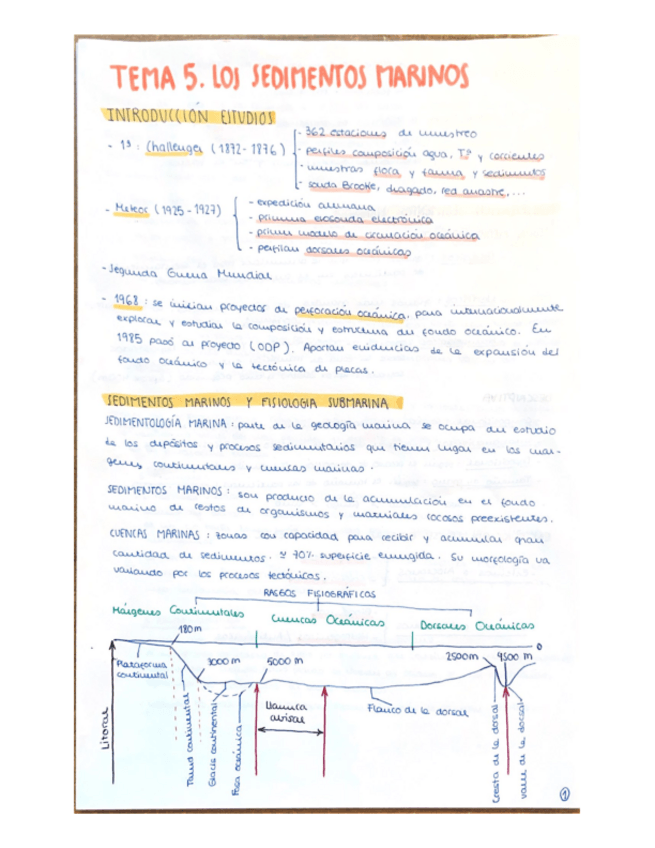 TEMA 5. LOS SEDIMENTOS MARINOS
INTRODUCCIÓN ESTUDIOS
- 1º : Challenger (1872-1876)
- 362 estaciones de muestreo
- perfiles composición agua, Tª y corrientes
- muestras flora y fauna y sedimentos
- sonda Brooke, dragado, red arrastre, ...
- Meteor (1925-1927)
- expedición alemana
- primera ecosonda electrónica
- primer modelo de circulación oceánica
- perfilan dorsales oceánicas
- Segunda Guerra Mundial
- 1968 : se inician proyectos de perforación oceánica, para internacionalmente
explorar y estudiar la composición y estructura del fondo oceánico. En
1985 pasó al proyecto (ODP). Aportan evidencias de la expansión del
fondo oceánico y la tectónica de placas.
SEDIMENTOS MARINOS Y FISIOLOGIA SUBMARINA
SEDIMENTOLOGÍA MARINA : parte de la geología marina se ocupa del estudio
de los depósitos y procesos sedimentarios que tienen lugar en los már-
genes continentales y cuencas marinas.
SEDIMENTOS MARINOS : son producto de la acumulación en el fondo
marino de restos de organismos y materiales rocosos preexistentes.
CUENCAS MARINAS : zonas con capacidad para recibir y acumular gran
cantidad de sedimentos. ≈ 70% superficie emergida. Su morfología va
variando por los procesos tectónicos.
RASGOS FISIOGRÁFICOS
Márgenes Continentales
Cuencas Oceánicas
Dorsales Oceánicas
180m
0
Plataforma
continental
3000 m
5000 m
2500m
4500 m
Litoral
Talud continental
Glacis continental
Fosa oceánica
Llanura
abisal
Flanco de la dorsal
Cresta de la dorsal
valle de la dorsal
1